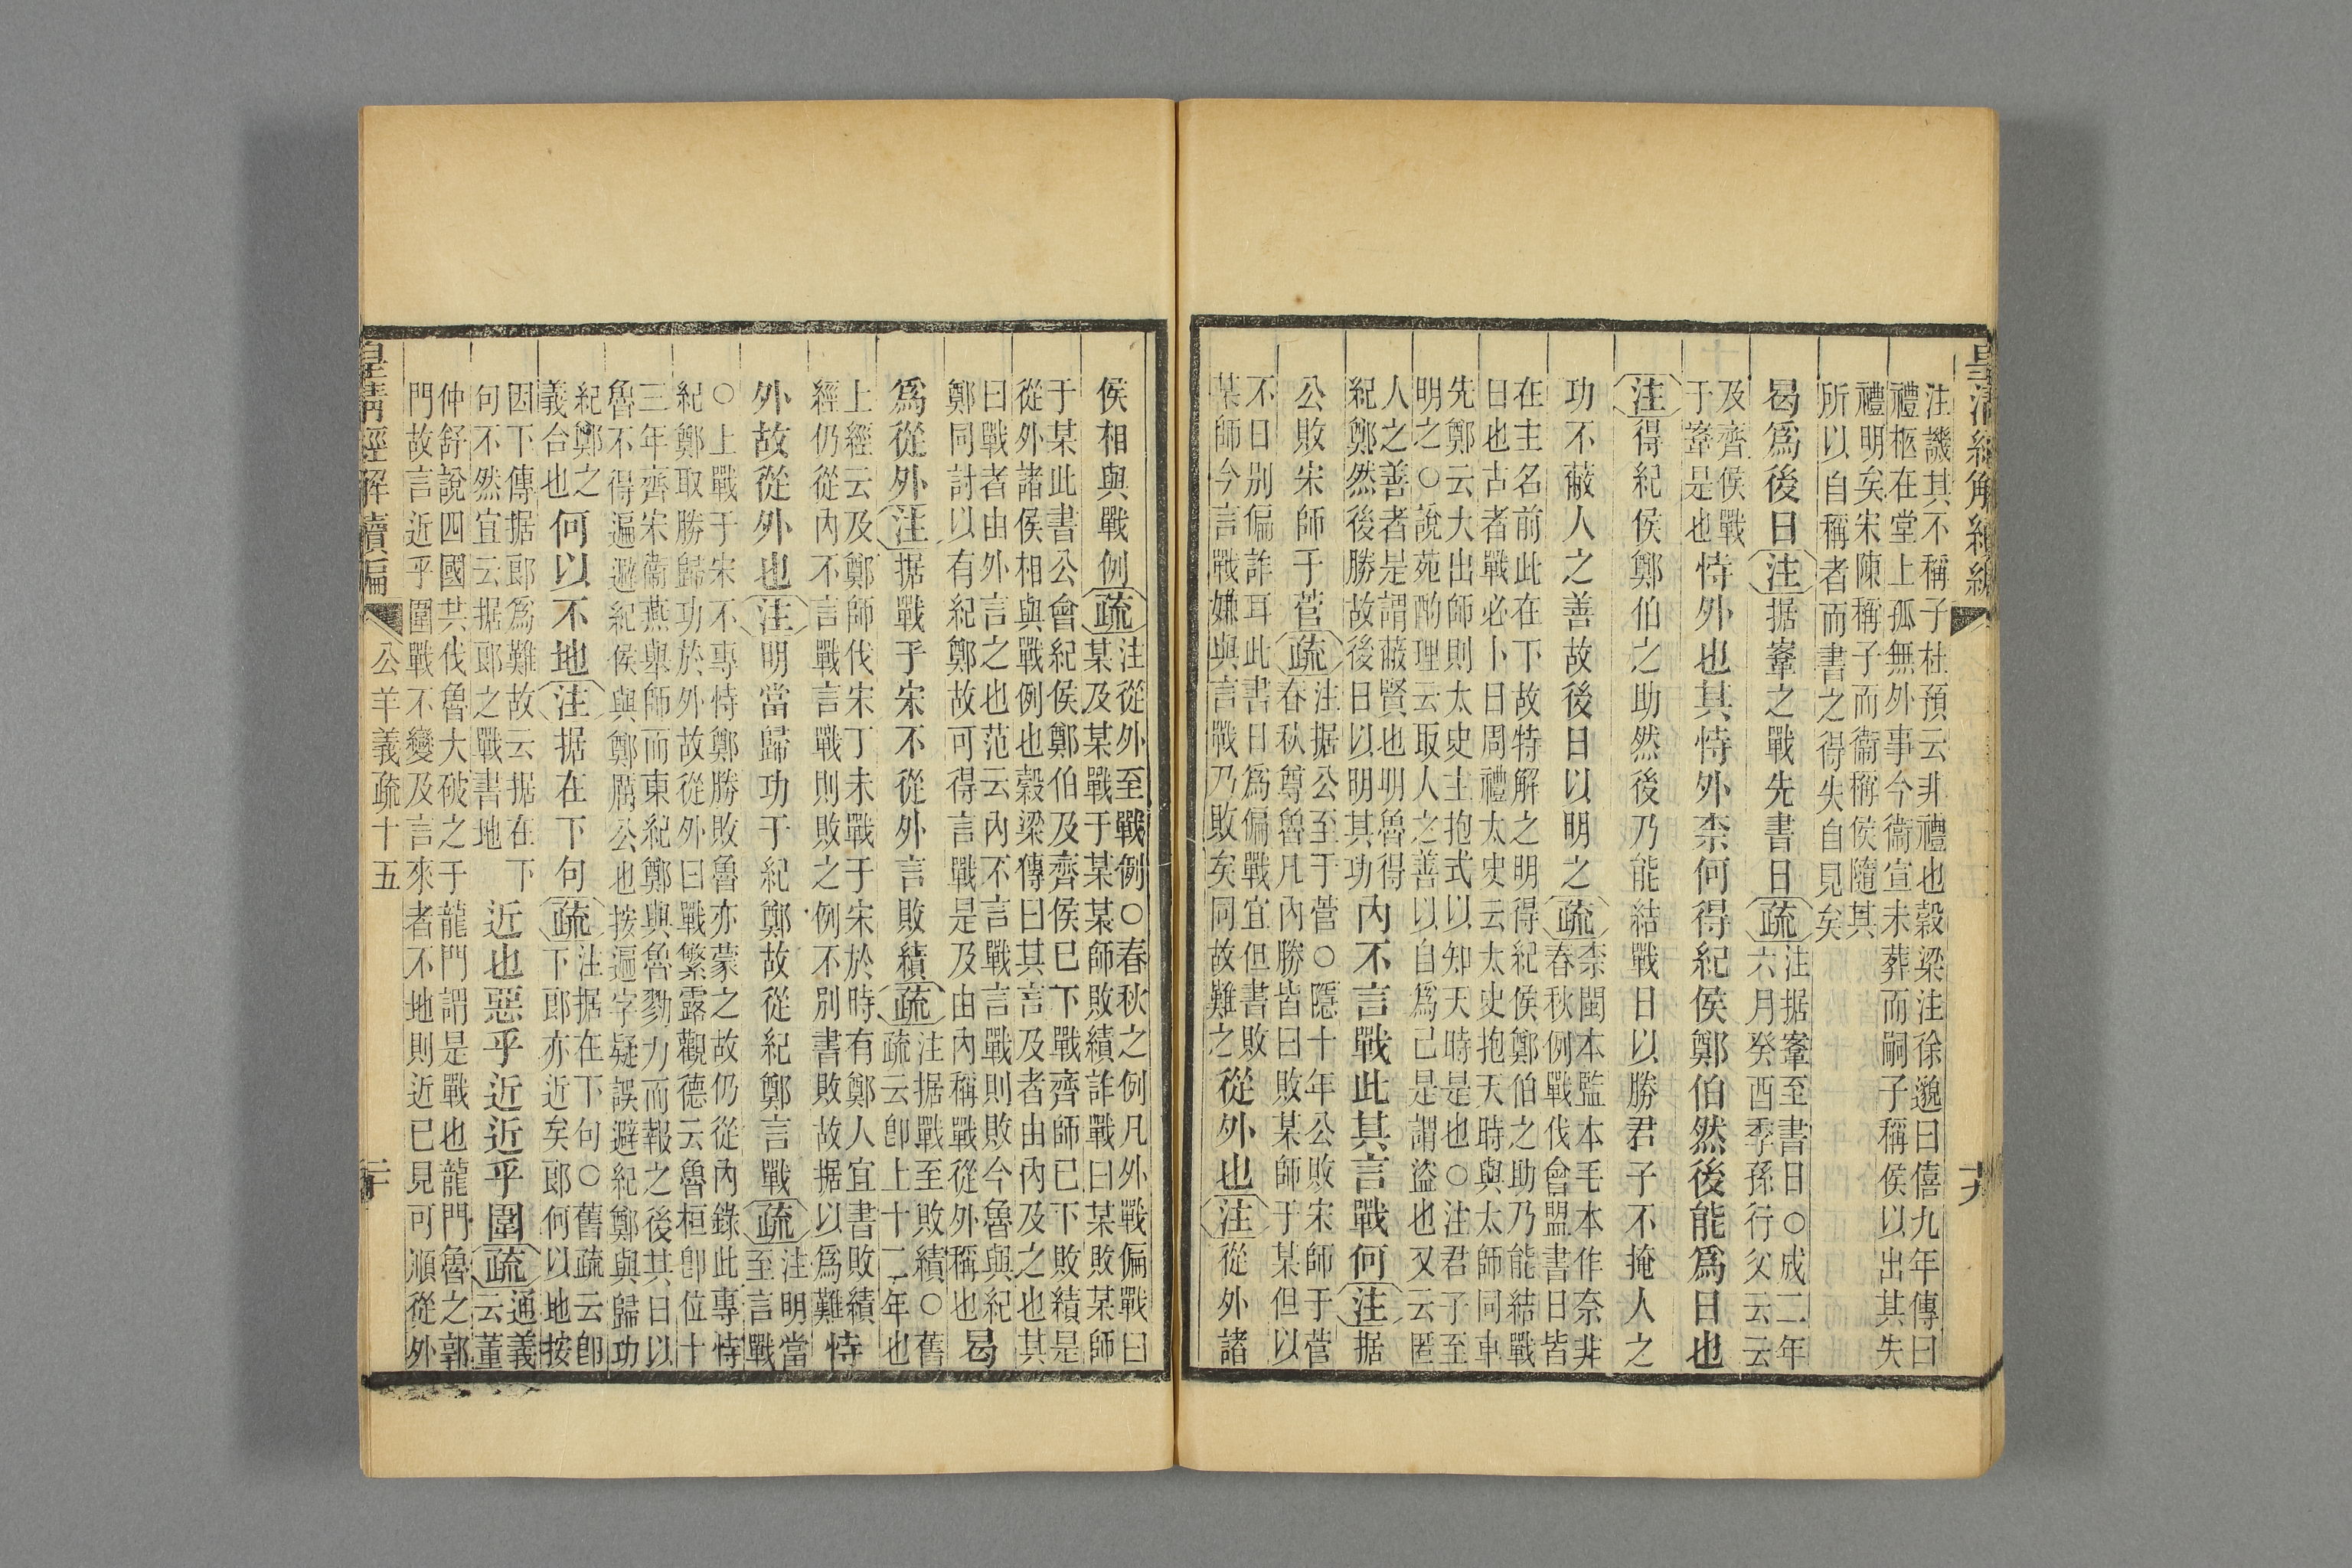 皇清經解續編
十九
注譏其不稱子杜預云非禮也穀梁注徐邈曰僖九年傳曰
禮柩在堂上孤無外事今衞宣未葬而嗣子稱侯以出其失
禮明矣宋陳稱子而衞稱侯隨其
所以自稱者而書之得失自見矣
曷爲後日注据鞌之戰先書日疏注据鞌至書日○成二年
六月癸酉季孫行父云云
及齊侯戰
于鞌是也恃外也其恃外柰何得紀侯鄭伯然後能爲日也
注得紀侯鄭伯之助然後乃能結戰日以勝君子不掩人之
功不蔽人之善故後日以明之疏柰閩本監本毛本作奈非
春秋例戰伐會盟書日皆
在主名前此在下故特解之明得紀侯鄭伯之助乃能結戰
日也古者戰必卜日周禮太史云太史抱天時與太師同車
先鄭云大出師則太史主抱式以知天時是也○注君子至
明之○說苑酌理云取人之善以自爲己是謂盜也又云匿
人之善者是謂蔽賢也明魯得
紀鄭然後勝故後日以明其功內不言戰此其言戰何注据
公敗宋師于菅疏注据公至于菅○隱十年公敗宋師于菅
春秋尊魯凡內勝皆曰敗某師于某但以
不日別偏詐耳此書日爲偏戰宜但書敗
某師今言戰嫌與言戰乃敗矣同故難之從外也注從外諸
侯相與戰例疏注從外至戰例○春秋之例凡外戰偏戰曰
某及某戰于某某師敗績詐戰曰某敗某師
于某此書公會紀侯鄭伯及齊侯已下戰齊師已下敗績是
從外諸侯相與戰例也穀梁傳曰其言及者由內及之也其
曰戰者由外言之也范云內不言戰言戰則敗今魯與紀
鄭同討以有紀鄭故可得言戰是及由內稱戰從外稱也曷
爲從外注据戰于宋不從外言敗績疏注据戰至敗績○舊
疏云卽上十二年也
上經云及鄭師伐宋丁未戰于宋於時有鄭人宜書敗績
經仍從內不言戰言戰則敗之例不別書敗故据以爲難恃
外故從外也注明當歸功于紀鄭故從紀鄭言戰疏注明當
至言戰
○上戰于宋不專恃鄭勝敗魯亦蒙之故仍從內錄此專恃
紀鄭取勝歸功於外故從外曰戰繁露觀德云魯桓卽位十
三年齊宋衞燕舉師而東紀鄭與魯勠力而報之後其日以
魯不得遍避紀侯與鄭厲公也按遍字疑誤避紀鄭與歸功
紀鄭之
義合也何以不地注据在下句疏注据在下句○舊疏云卽
下郎亦近矣郎何以地按
因下傳据郎爲難故云据在下
句不然宜云据郎之戰書地近也惡乎近近乎圍疏通義
云董
仲舒說四國共伐魯大破之于龍門謂是戰也龍門魯之郭
門故言近乎圍戰不變及言來者不地則近已見可順從外
皇清經解續編
公羊義疏十五
二十